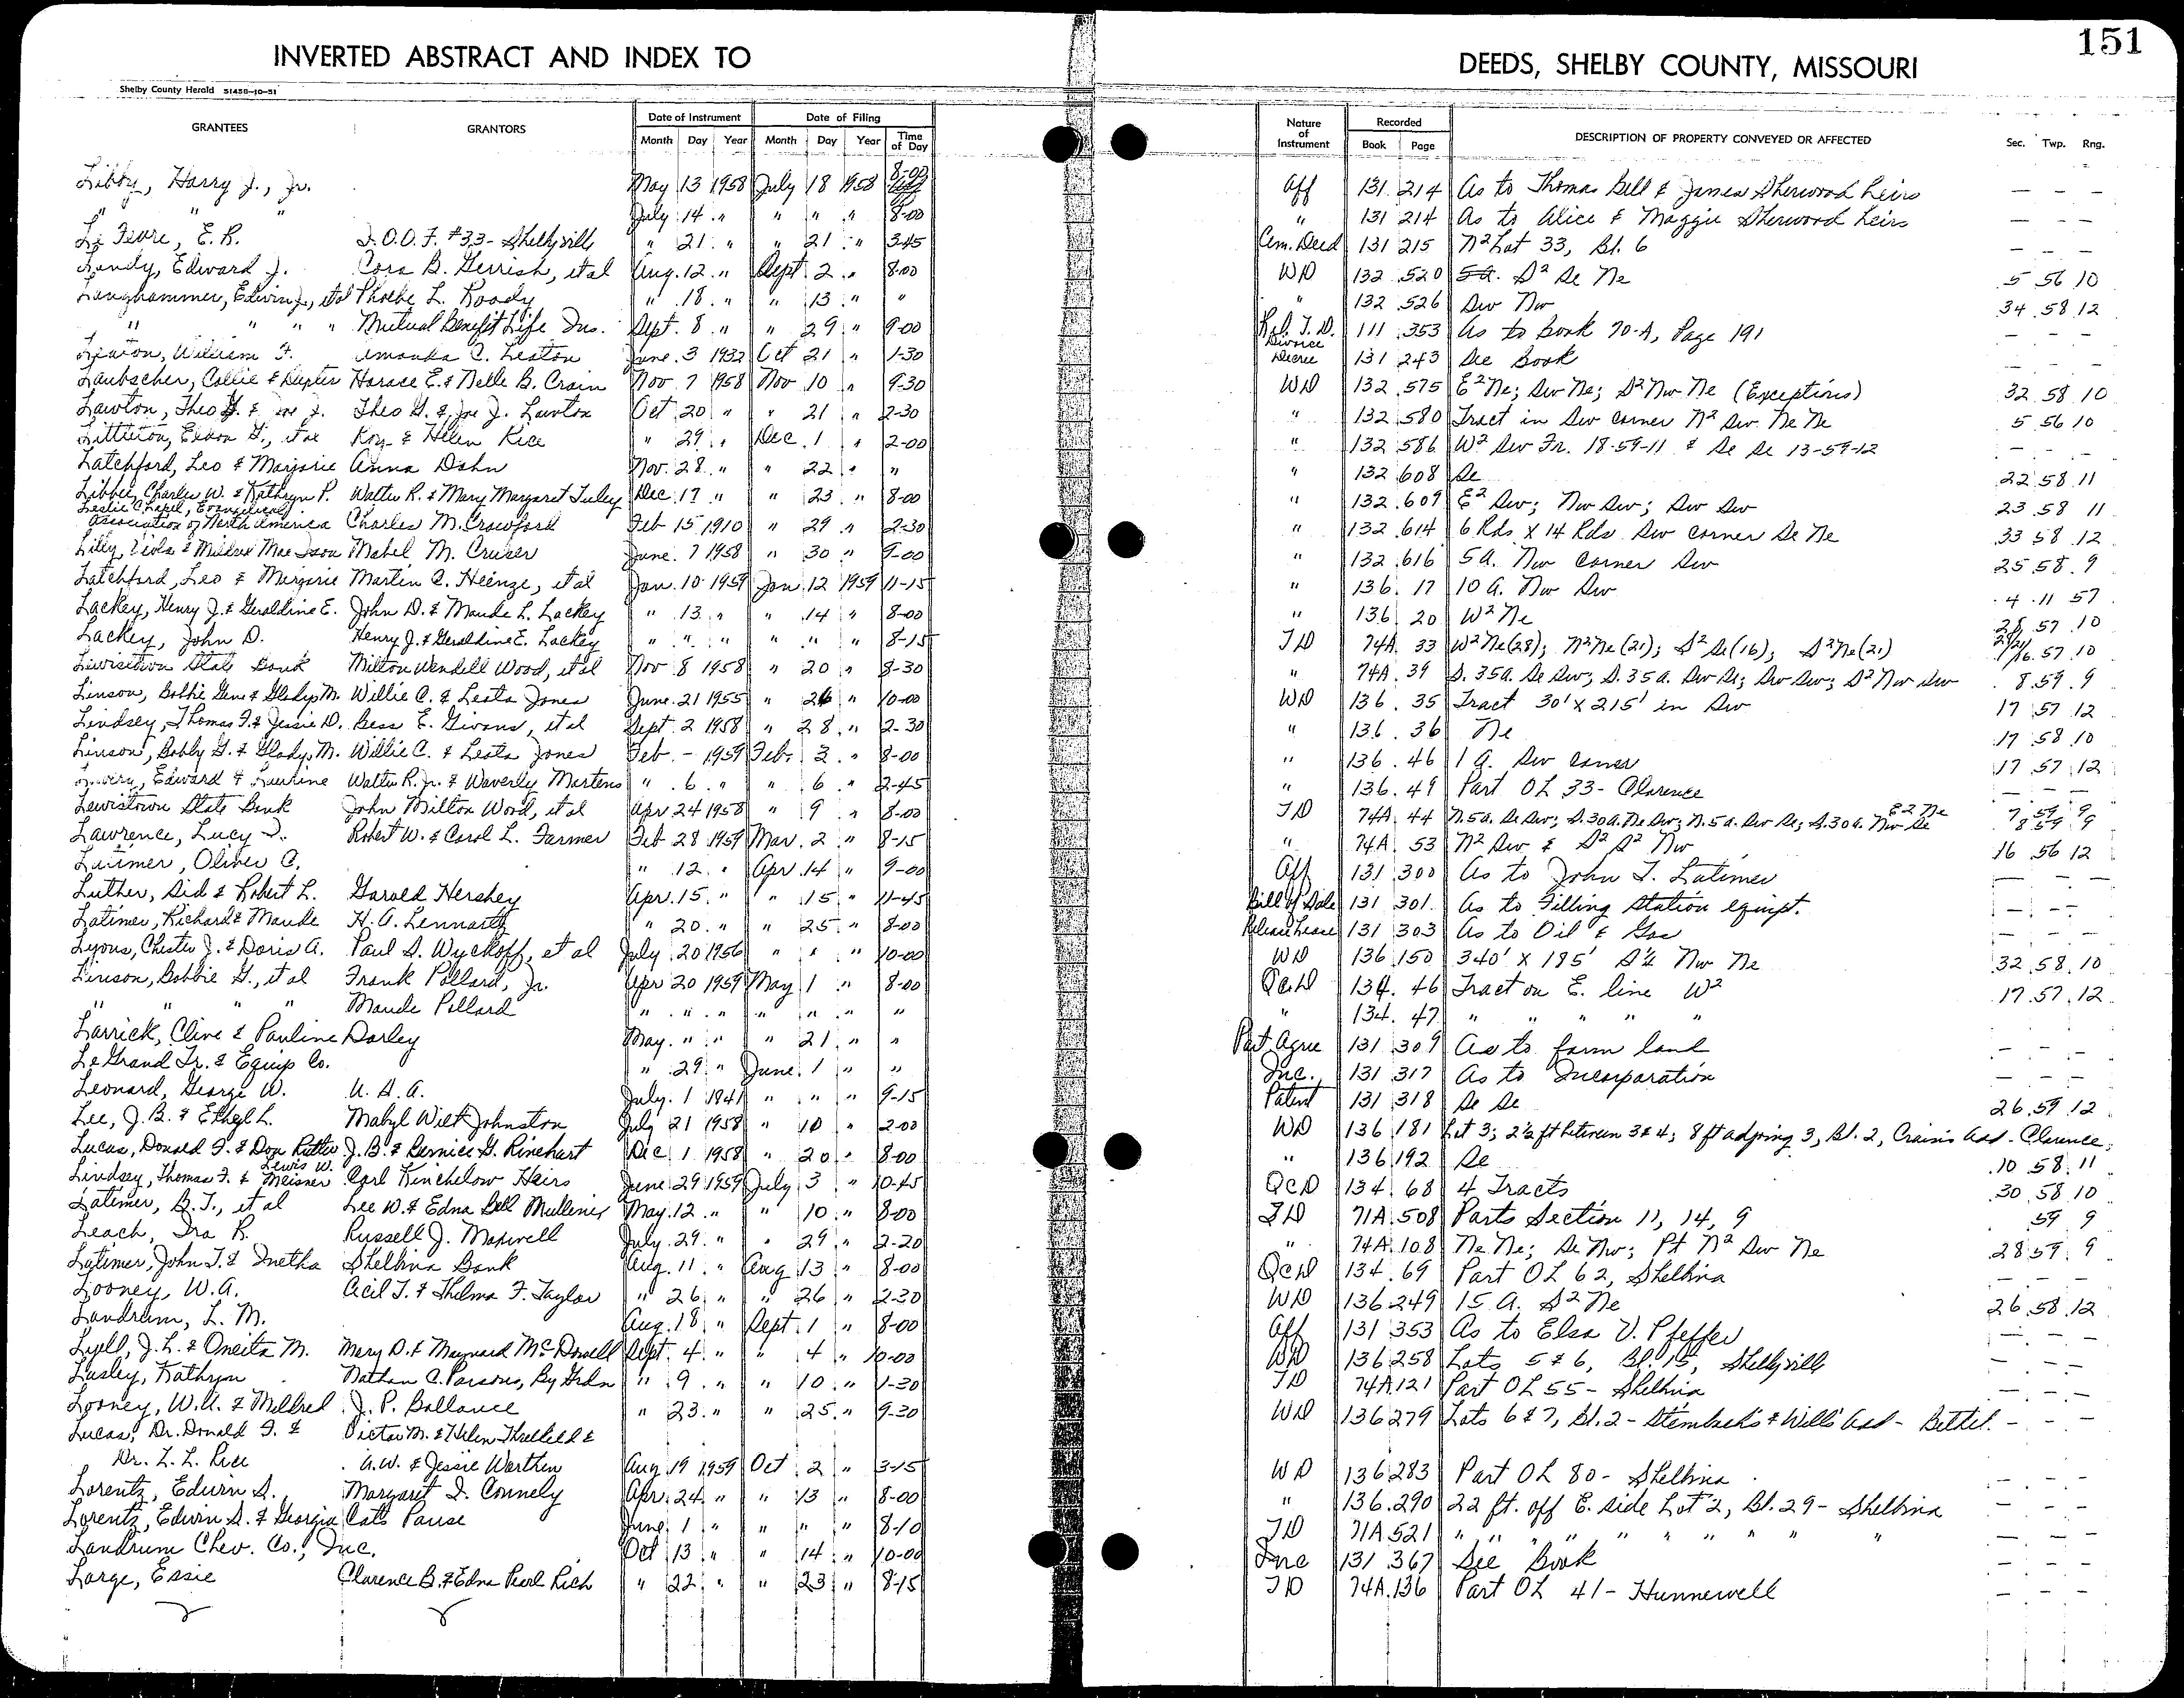 151
INVERTED ABSTRACT AND INDEX TO DEEDS, SHELBY COUNTY, MISSOURI
Shelby County Herald 51458-10-51
GRANTEES GRANTORS Date of Instrument Date of Filing Nature of Instrument Recorded DESCRIPTION OF PROPERTY CONVEYED OR AFFECTED Sec. Twp. Rng.
Month Day Year Month Day Year Time of Day Book Page
Libby, Harry J., Jr. May 13 1958 July 18 1958 8-00 Aff 131 214 As to Thomas Bell & James Sherwood heirs — — —
" " " July 14 " " " " 8-00 " 131 214 As to Alice & Maggie Sherwood heirs — — —
E. R. I.O.O.F. #33- Shelbyville " 21 " " 21 " 3-45 Cem. Deed 131 215 N2 Lot 33, Bl. 6 — — —
Landy, Edward J. Cora B. Gerrish, et al Aug. 12 " Sept. 2 " 8-00 WD 132 520 5a. S2 Se Ne 5 56 10
Langhammer, Edwin J., et al Phoebe L. Roody " 18 " " 13 " " " 132 526 Sw Nw 34 58 12
" " " " Mutual Benefit Life Ins. Sept. 8 " " 29 " 9-00 Rel. T. D. 111 353 As to Book 70-A, Page 191 — — —
Leaton, William F. Amanda C. Leaton June 3 1932 Oct 21 " 1-30 Divorce Decree 131 243 See Book — — —
Laubscher, Collie & Dexter Horace E. & Nelle B. Crain Nov 7 1958 Nov 10 " 9-30 WD 132 575 E2 Ne; Sw Ne; S2 Nw Ne (Exceptions) 32 58 10
Lawton, Theo G. & J. Theo G. & J. Lawton Oct 20 " " 21 " 2-30 " 132 580 Tract in Sw corner N2 Sw Ne Ne 5 56 10
Littleton, Eldon G., et al Roy & Helen Rice " 29 " Dec. 1 " 2-00 " 132 586 W2 Sw Fr. 18-59-11 & Se Se 13-59-12 — — —
Latchford, Leo & Marjorie Anna Dohn Nov. 28 " " 22 " " " 132 608 Se 22 58 11
Libbee, Charles W. & Kathryn P. Walter R. & Mary Margaret Tuley Dec 17 " " 23 " 8-00 " 132 609 E2 Sw; Nw Sw; Sw Sw 23 58 11
Leslie Chapel, Evangelical
Association of North America Charles M. Crawford Feb 15 1910 " 29 " 2-30 " 132 614 6 Rds X 14 Rds Sw corner Se Ne 33 58 12
Lilly, Viola & Mildred Mae Mabel M. Cruser June 7 1958 " 30 " 9-00 " 132 616 5a. Nw corner Sw 25 58 9
Latchford, Leo & Marjorie Martin C. Heinze, et al Jan. 10 1959 Jan 12 1959 11-15 " 136 17 10 a. Nw Sw 4 11 57
Lackey, Henry J. & Geraldine E. John D. & Maude L. Lackey " 13 " " 14 " 8-00 " 136 20 W2 Ne 28 57 10
Lackey, John D. Henry J. & Geraldine E. Lackey " " " " " " 8-15 TD 74A 33 W2 Ne (28); N2 Ne (21); S2 Se (16); S2 Ne (21) 28/21/16 57 10
Lewistown State Bank Milton Wendell Wood, et al Nov 8 1958 " 20 " 8-30 " 74A 39 S. 35a. Se Sw; S. 35a. Sw Se; Sw Sw; S2 Nw Sw 8 59 9
Linson, Bobbie Gene & Gladys M. Willie C. & Leata Jones June 21 1955 " 26 " 10-00 WD 136 35 Tract 30' x 215' in Sw 17 57 12
Lindsey, Thomas F. & Jessie D. Bess E. Givans, et al Sept 2 1958 " 28 " 2-30 " 136 36 Ne 17 58 10
Linson, Bobby G. & Gladys M. Willie C. & Leata Jones Feb. - 1959 Feb. 3 " 8-00 " 136 46 1 a. Sw corner 17 57 12
Edward & Walter R. Jr. & Waverly Martens " 6 " " 6 " 2-45 " 136 49 Part OL 33- Clarence — — —
Lewistown State Bank John Milton Wood, et al Apr 24 1958 " 9 " 8-00 TD 74A 44 N. 5a. Se Sw; S. 30a. Ne Sw; N. 5a. Sw Se; S. 30a. Nw Se E2 Ne 7 59 9 8 59 9
Lawrence, Lucy I. Robert W. & Carol L. Farmer Feb 28 1959 Mar. 2 " 8-15 " 74A 53 N2 Sw & S2 S2 Nw 16 56 12
Latimer, Oliver C. " 12 " Apr 14 " 9-00 Aff 131 300 As to John T. Latimer — — —
Luther, Sid & Robert L. Garold Hershey Apr. 15 " " 15 " 11-45 Bill of Sale 131 301 As to Filling Station equipt. — — —
Latimer, Richard & Maude H. A. Lennartz " 20 " " 25 " 8-00 Release Lease 131 303 As to Oil & Gas — — —
Lyons, Chester J. & Doris A. Paul S. Wyckoff, et al July 20 1956 " " " 10-00 WD 136 150 340' X 185' Nw Ne 32 58 10
Linson, Bobbie G., et al Frank Pollard, Jr. Apr 20 1959 May 1 " 8-00 QCD 134 46 Tract on E. line W2 17 57 12
" " " " Maude Pollard " " " " " " " " 134 47 " " " " "
Larrick, Clive & Pauline Darley May " " " 21 " " Part. Agree 131 309 As to farm land — — —
LeGrand Tr. & Equip Co. " 29 " June 1 " " Inc. 131 317 As to Incorporation — — —
Leonard, George W. U. S. A. July 1 1841 " " " 9-15 Patent 131 318 Se Se 26 59 12
Lee, J. B. & Ethel L. Mabyl Wilt Johnston July 21 1958 " 10 " 2-00 WD 136 181 Lot 3; 2½ ft between 3 & 4; 8 ft adjoing 3, Bl. 2, Crain's Add - Clarence
Lucas, Donald F. & Don Rutter J. B. & Bernice G. Rinehart Dec 1 1958 " 20 " 8-00 " 136 192 Se 10 58 11
Lindsey, Thomas F. & Lewis W. Meisner Carl Kinchelow Heirs June 29 1959 July 3 " 10-45 QCD 134 68 4 Tracts 30 58 10
Latimer, B. T., et al Lee W. & Edna Bell Mullenix May 12 " " 10 " 8-00 TD 71A 508 Parts Section 11, 14, 9 59 9
Leach, Ira R. Russell J. Maxwell July 29 " " 29 " 2-20 " 74A 108 Ne Ne; Se Nw; Pt N2 Sw Ne 28 59 9
Latimer, John T. & Inetha Shelbina Bank Aug. 11 " Aug 13 " 8-00 QCD 134 69 Part OL 62, Shelbina — — —
Looney, W. A. Cecil T. & Thelma F. Taylor " 26 " " 26 " 2-30 WD 136 249 15 a. S2 Ne 26 58 12
Landrum, L. M. Aug. 18 " Sept. 1 " 8-00 Aff 131 353 As to Elsa V. Pfeffer — — —
Lyell, J. L. & Oneita M. Mary D. & Maynard McDowell Sept. 4 " " 4 " 10-00 WD 136 258 Lots 5 & 6, Bl. 15, Shelbyville — — —
Lasley, Kathryn Nathan C. Parsons, By Grdn " 9 " " 10 " 1-30 TD 74A 121 Part OL 55- Shelbina — — —
Looney, W. A. & Mildred J. P. Ballance " 23 " " 25 " 9-30 WD 136 279 Lots 6 & 7, Bl. 2 - Steinbach's & Will's Add - Bethel. — — —
Lucas, Dr. Donald F. & Victor M. & Helen Threlkeld &
Dr. L. L. Rice A. W. & Jessie Worthen Aug 19 1959 Oct 2 " 3-15 WD 136 283 Part OL 80- Shelbina — — —
Lorentz, Edwin S. Margaret I. Connely Apr. 24 " " 13 " 8-00 " 136 290 22 ft. off E. side Lot 2, Bl. 29 - Shelbina — — —
Lorentz, Edwin S. & Georgia Cats Pause June 1 " " " " 8-10 TD 71A 521 " " " " " " " " " — — —
Landrum Chev. Co., Inc. Oct 13 " " 14 " 10-00 Inc 131 367 See Book — — —
Large, Essie Clarence B. & Edna Pearl Rich " 22 " " 23 " 8-15 TD 74A 136 Part OL 41 - Hunnewell — — —